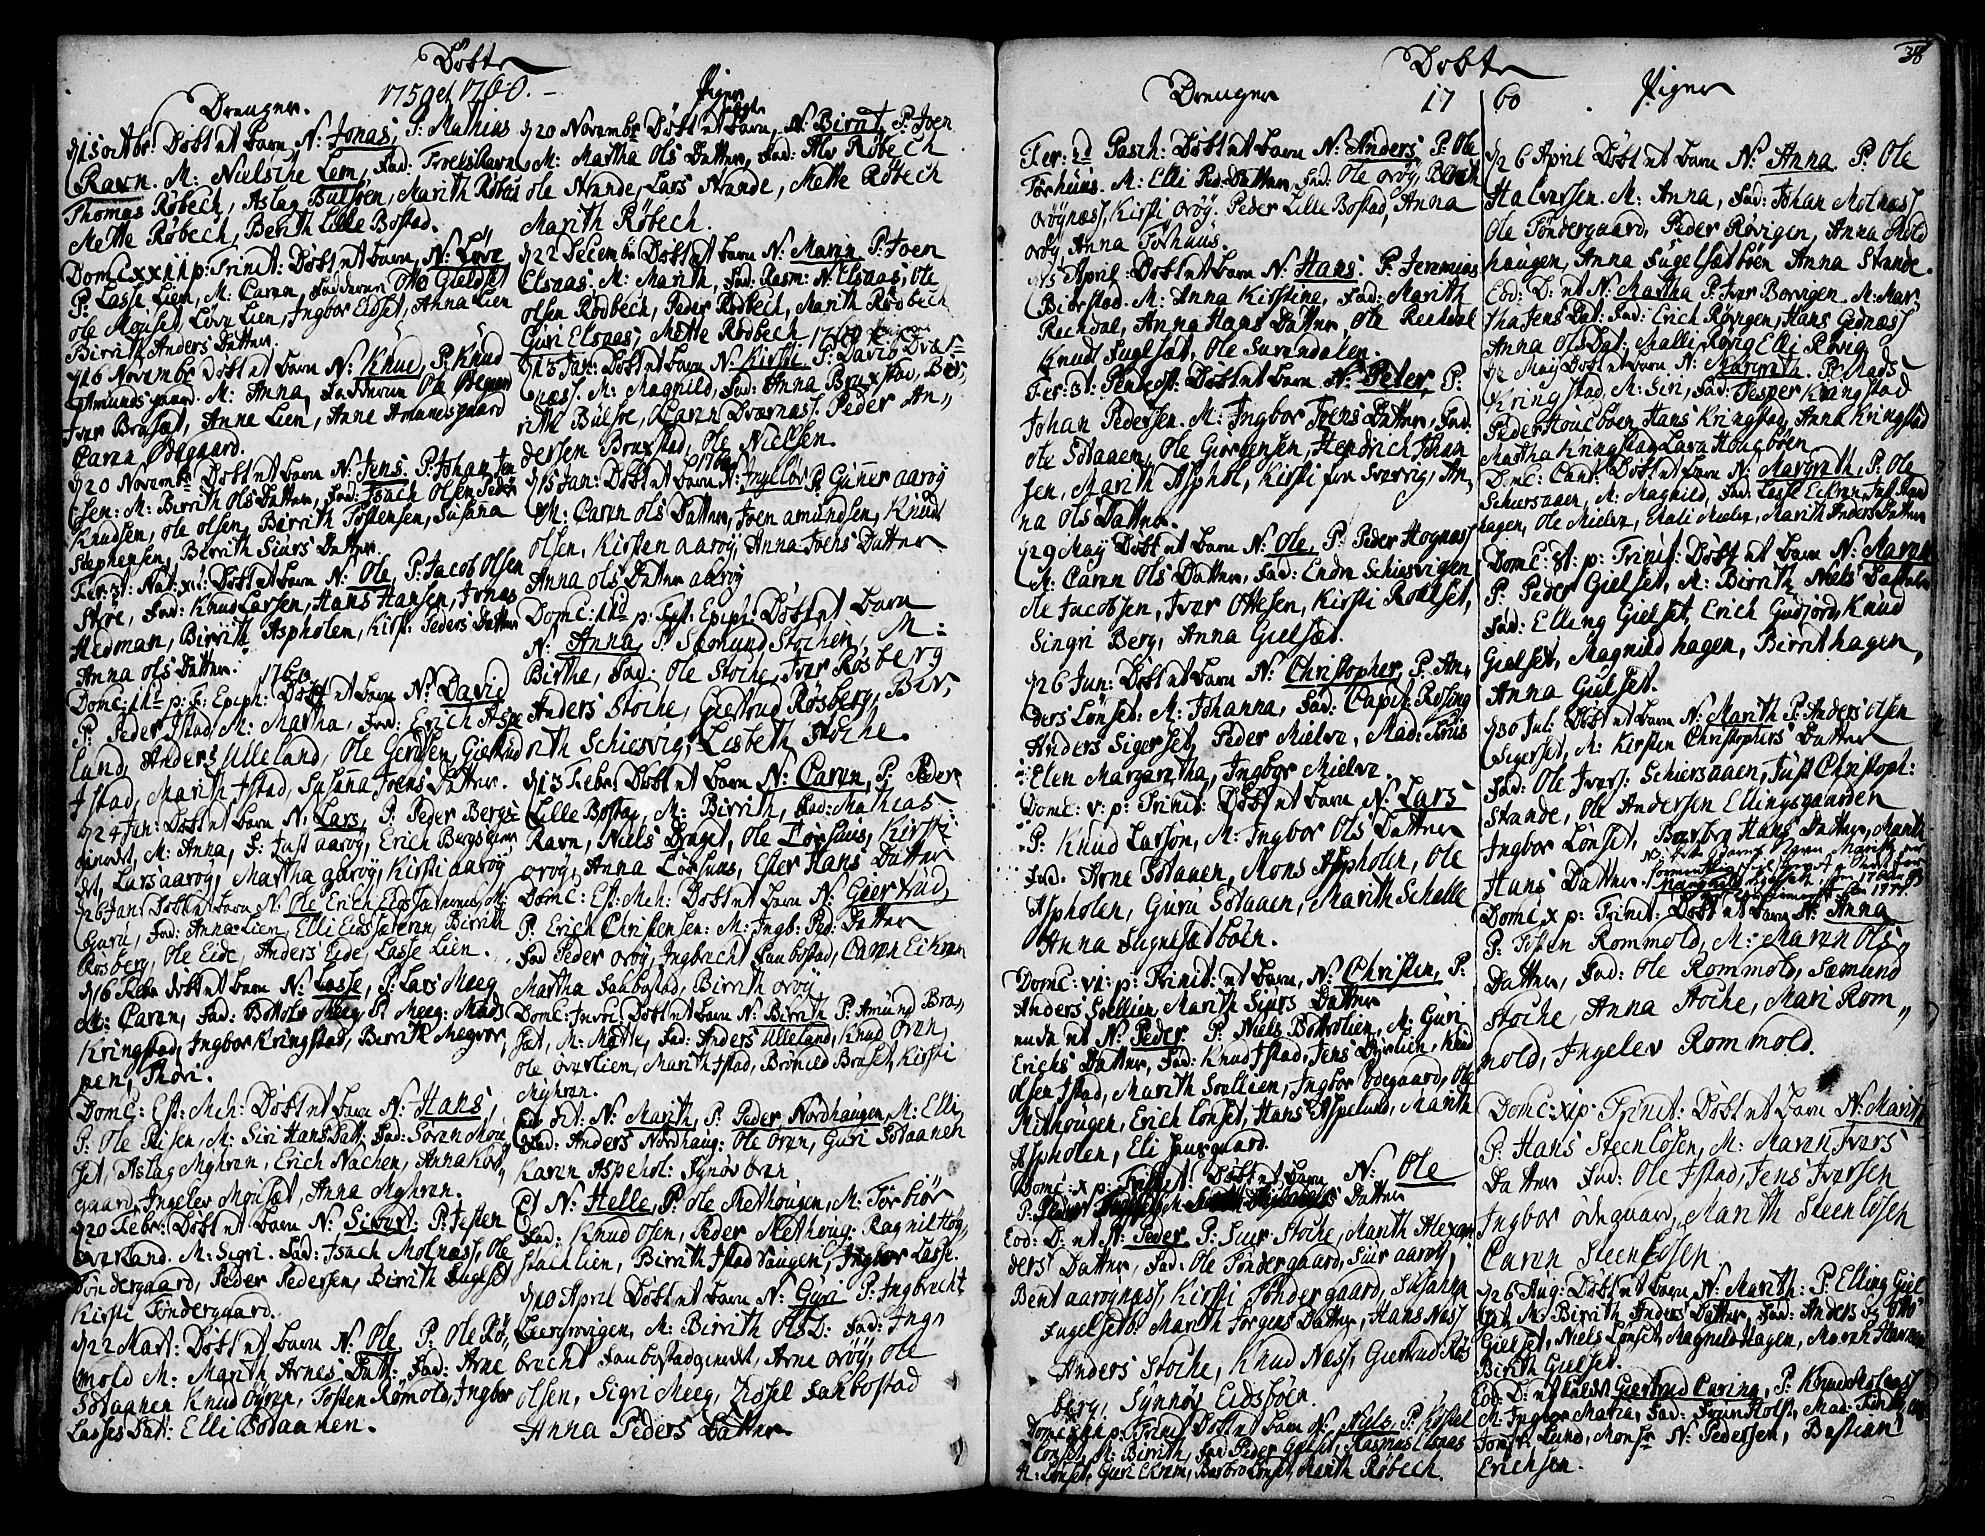 Døbte
1759 et 1760.
Drenger.
d 15 octbr: Døbt et barn N: Jonas, P: Mathias
Ravn. M: Nielsche Lem, Fad: Ravn
Thomas Røbech, Aslag Bulsøen, Marith Røbech
Mette Røbech, Berith Lille Bostad.
Domc: xxiii p: Trinit: Døbt et barn, N: Løve
P: Lasse Lien, M: Caren, Fadderne Otto Gieldset
Ole Moused, Løve Lien, Ingbor Eidset, Anna Lien
Birrith Anders Datter.
d 16 Novembr Døbt et barn N: Knud, P: Knud
Amundsgaard. M: Anna, Fadderne Ole Ødegaard
Iver Braset, Anna Lien, Anne Amundsgaard
Caren Ødegaard.
d 20 Novembr Døbt et barn N: Jens, P: Johan Jen
sen: M: Birrith Ols Datter, Fad: Isach Olsen Peder
Knudsen, Ole Olsen, Birrith Tostensen, Susana
Stephensen, Birrith Siurs Datter.
Fer: st: Nat: xti: Døbt et barn N: Ole, P: Jacob Olsen
Styre, Fad: Knud Larsen, Hans Hansen, Jonas
Hedman, Birrith Aspholen, Kirst: Peders Datter
Anna Ols Datter.
1760
Domc: 1ma p: F: Epiph: Døbt et barn N: David
P: Peder Istad, M: Martha, Fad: Erich Aspe
lund, Anders Ulleland, Ole Gerdsen, Giertrud
Istad, Marith Istad, Susana Joens Datter.
d 24 Jan: Døbt et barn N: Lars, P: Peder Bergs
einedet, M: Anna, F: Just aarøy, Erich Bergseine
det, Lars aarøy, Martha aarøy, Kirsti aarøy
d 26 Jan: Døbt et barn N: Ole Erich Eidssæteren, M:
Guru, Fad: Anna Lien, Elli Eidssæteren, Birrith
Røsberg, Ole Eide, Anders Eide, Lasse Lien.
d 16 Febr Døbt et barn N: Lasse, P: Lars Meeg
M: Caren, Fad: Bottolv Meeg, P: Meeg: Mads
Kringstad, Ingbor Kringstad, Birrith Megrøe
nen, Thori.
Domc: Est: Meh: Døbt et barn N: Hans,
P: Ole Risen, M: Siri Hans Datt, Fad: Søren Mou
set, Aslag Myhren, Erich Nachen, Anna Kors
gaard, Ingeler Mouset, Anna Myhren.
d 20 Febr: Døbt et barn N: Sivert. P: Josten
Overland. M: Sigri. Fad: Isach Molnæss, Ole
Tøndergaard, Peder Pedersen, Birrith Fuglset
Kirsti Tøndergaard.
d 22 Mart: Døbt et barn N: Ole P: Ole Ro,
mold M: Marith Arnes Datt. Fad: Arne
Sotaanen Knud Oyren, Tosten Romold, Ingbor
Lasses Datt: Elli Botaanen.
Piger
d 20 Novembr Døbt et barn, N: Birrit, P: Joen
M: Martha Ols Datter, Fad: Røbech
Ole Strande, Lars Strande, Mette Røbech
Marith Røbech.
d 22 Decembr Døbt et barn N: Marin P: Joen
Elsaas: M: Marith, Fad: Rasm: N: Elsaas, Ole
Olsen Rødbech, Peder Rødbech, Marith Rødbech
Guri Elsaas, Mette Rødbech. 1760
d 13 Jan: Døbt et barn N: Kirstie P: David Dvær
næs. M: Magnild, Fad: Anna Bruxstad, Ber,
rith Bulsøe, Karen Dvernæs. Peder An,,
dersen Bruxstad, Ole Nielsen.
1760
d 15 Jan: Døbt et barn N: Ingeløv P: Guner aarøy
M: Caren Ols Datter, Joen amundsen, Knud
Olsen, Kirsten aarøy, Anna Joens Datter
Anna Ols Datter aarøy
Domc: 1ma p: Fest: Epiph: Døbt et barn
N: Anna, P: Sæmund Stochen, M:
Birthe, Fad: Ole Stoche, Iver Røsberg
Anders Stoche, Giertrud Røsberg, Bir,
rith Schiesvig, Lisbeth Stoche.
d 13 Febr: Døbt et barn N: Caren, P: Peder
Lille Bostad, M: Birrith, Fad: Mathias
Ravn, Niels Draget, Ole Torhuus, Kirsti
Orøy, Anna Torhuus, Ester Hans Datter
Domc: Est: Meh: Døbt et barn N: Giertrud,
P: Erich Christensen: M: Ingb: Ped: Datter
Fad Peder Orøy, Ingbricht Faabostad, Caren Eikrem
Martha Faabostad, Birrith Orøy.
Domc: Invoc: Døbt et barn N: Birrith P: Amund Bra,,
set, M: Mette, Fad: Anders Ulleland, Knud Oren
Ole Overlien, Marith Istad, Brønild Braset, Kirsti
Myhren.
Eod: et: N: Marith, P: Peder Nordhaugen, M: Elli
Fad: Anders Nordhaug: Ole Oren, Guri Sotaanen
Karen Aspehol: Synøv Oren
Et N: Helle, P: Ole Methougen, M: Torbiør
Fad: Knud Olsen, Peder Methoug: Ragnil Høy,
stachlien, Birrith Istad Haugen, Ingbor Lasse.
d 10 April Døbt et barn N: Guri P: Ingbricht
Leergrovigen, M: Birrith Ols D: Fad: Ing,
bricht Faabostadgeredt, Arne Orøy, Ole
Olsen, Sigri Meeg, Zidsel Fahbostad
Anna Peders Datter.
Døbte
38
Drenger
17
Fer: 2d Pasch: Døbt et barn N: Anders P: Ole
Torhuus. M: Elli Ped: Datter, Fad: Ole Orøy, Bereth
Orøynæss, Kirsti Orøy. Peder Lille Bostad, Anna
Orøy, Anna Torhuus.
d 15 April Døbt et barn N: Hans. P: Jeremias
Biørstad. M: Anna Kirstina, Fad: Marith
Reendal, Anna Hans Datter, Ole Reendal
Knud Fuglset, Ole Surendalen.
Fer: st: Pentecst: Døbt et barn N: Peter, P:
Johan Pedersen. M: Ingbor Joens Datter, Fad
Ole Sotaaen, Ole Giørgensen, Hendrich Johan
sen, Marith Asphol, Kirsti fra Svarvig, An,
na Ols Datter.
d 29 May Døbt et barn N: Ole, P: Peder Hognæss
M: Caren Ols Datter, Fad: Endre Schiesvigen
Ole Jacobsen, Iver Ottesen, Kirsti Roaldset,
Singri Berg, Anna Gielset.
d 26 Jun: Døbt et barn N: Christopher, P: An,
ders Lønset: M: Johanna, Fad: Capit: Røsing
Anders Sigerset, Peder Mielve, Mad: Friis
Elen Margaretha, Ingbor Mielve.
Domc: v: p: Trinit: Døbt et barn N: Lars
P: Knud Larsøn, M: Ingbor Ols Datter
Fad: Arne Sotaaen, Mons Aspholen, Ole
Aspholen, Guru Sotaaen, Marith Schalle
Anna Fugelsetbøen.
Domc: vi: p: Trinit: et barn, N: Christen, P:
Anders Sollien Marith Siurs Datter
nendt et N: Peder P: Niels Bottrolien, M: Guri
Erichs Datter, Fad: Knud Istad, Jens Overlien, Knud
Olsen Istad, Marith Soellien, Ingbor Ødegaard, Ole
Mithougen, Erich Lønset, Hans Aspelund, Marith
Aspholen, Eli Huusgaard.
Domc: x p: Trinit: Døbt et barn N: Ole
P: Datter
Eod: D: et N: Peder P: Siur Stoche, Marith Alexan
ders Datter, Fad: Ole Tøndergaard, Siur aarøy,
Bent aarøynæss, Kirsti Tøndergaard, Susanna
Fugelsetb: Marith Jørgens Datter, Hans Næss
Anders Stoche, Knud Næss, Giertrud Røs
berg, Synnøv Eidsbøen.
Domc xiii p: Trinit Døbt et barn N: Niels P: Kostel
Lønset, M: Birrith, Fad Peder Gielset, Rasmus Elsaas
H: Lønset, Guri Ekrem, Barbro Lønset, Marith Røbech.
60
Piger
d 26 April Døbt et barn N: Anna. P: Ole
Halversen. M: Anna, Fad: Johan Molnæss
Ole Tøndergaard, Peder Røvigen, Anna Mold
haugen, Anna Fugelsætbøen Anna Strande.
Eod: D: et N: Martha P: Iver Borvigen. M: Mar,
tha Jens Dat: Fad: Erich Røvigen, Hans Gidnæss
Anna Ols Dat: Malli Røvig Elli Røvig
d 2 May Døbt et barn N: Margreth. P: Mads
Kringstad, M: Siri, Fad: Jesper Kringstad
Peder Houcboen, Hans Kringstad, Anna Kringstad
Martha Kringstad, Lava Houcboen
Domc: Cant: Døbt et barn N: Margreth, P: Ole
Schiersaaen, M: Magnild, Fad: Lasse Eikrem, Just
hagen, Ole Mielve, Mali Mielve, Marith Anders Datter
Domc: st: p: Trinit: Døbt et barn N: Maren
P: Peder Gielset, M: Birrith Niels Datter
Fad: Elling Gielset, Erich Gudfiord, Knud
Gielset, Magnild hagen, Birrit hagen,
Anna Gielset.
d 30 Jul: Døbt et barn N: Marith P: Anders Olsen
Sigerset, M: Kirsten Christophers Datter
Fad: Ole Ivers: Schiersaaen, Just Christoph:
Strande, Ole Andersen Ellingsgaarden
Ingbor Lønset, Barbro Hans Datter, Marith
Hans Datter.
Domc x p: Trinit: Døbt et barn N: Anna
P: Tosten Rommold, M: Maren Ols,,
Datter, Fad: Ole Rommold, Sæmund
Stoche, Anna Stoche, Mari Rom,,
mold, Ingelev Rommold.
Domc: xi p: Trinit: Døbt et barn N: Marith
P: Hans Steenløsen, M: Maren Ivers
Datter Fad: Ole Istad, Jens Iversen
Ingbor Ødegaard, Marith Steenløsen
Caren Steenløsen.
d 26 Aug: Døbt et barn N: Marith: P: Elling Giel
set M: Birrith Anders Datter, Fad: Anders og Otto
Gielset, Niels Lønset, Magnild Hagen, Marith
Birith Gielset.
Eod: D: et kaldt Giertrud Carina, P: Knud Molnæss
M: Ingbor Maria, Fad: Friis Holst, Mad:
Jomfr: Lund, Monsr N: Pedersen, Bastian
Erichsen.